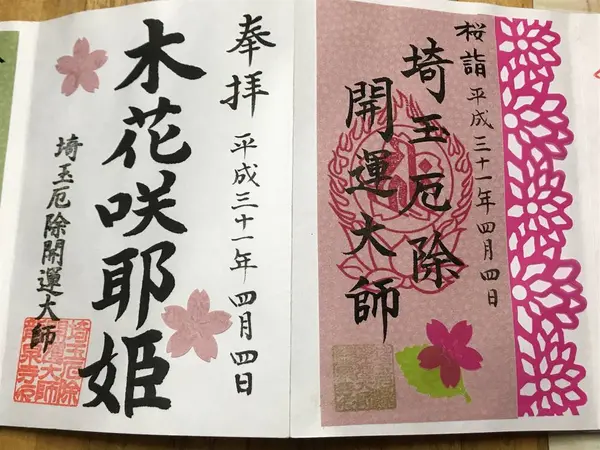 桜詣 平成三十一年四月四日
埼玉厄除
開運大師
奉拝 平成三十一年四月四日
木花咲耶姫
埼玉厄除開運大師
埼玉厄除
開運大師
龍泉寺印